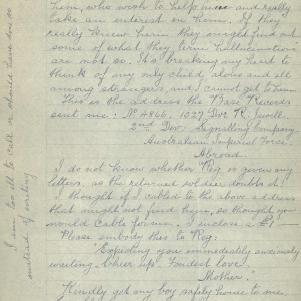 him, who wish to help him and really
take an interest in him. If they
really knew him they might find out
some of what they term hallucinations
are not so. It's breaking my heart to
think of my only child, alone and ill
among strangers and I cannot get to him.
This is the address the "Base Records
sent me: No 4866, 1027 Dvr R. Jewell
2nd Div: Signalling Company
Australian Imperial Force.
Abroad.
I do not know whether Reg is given any
letters, as the returned soldier doubts it.
I thought if I cabled to the above address
that might not find him, so thought you
would cable for me. I enclose a £1
Please embody this to Reg:
"Expecting you immediately anxiously
waiting. Cheer up. Fondest love."
Mother."
Kindly get my boy safely home to me
I am too ill to call or should have done so
instead of writing